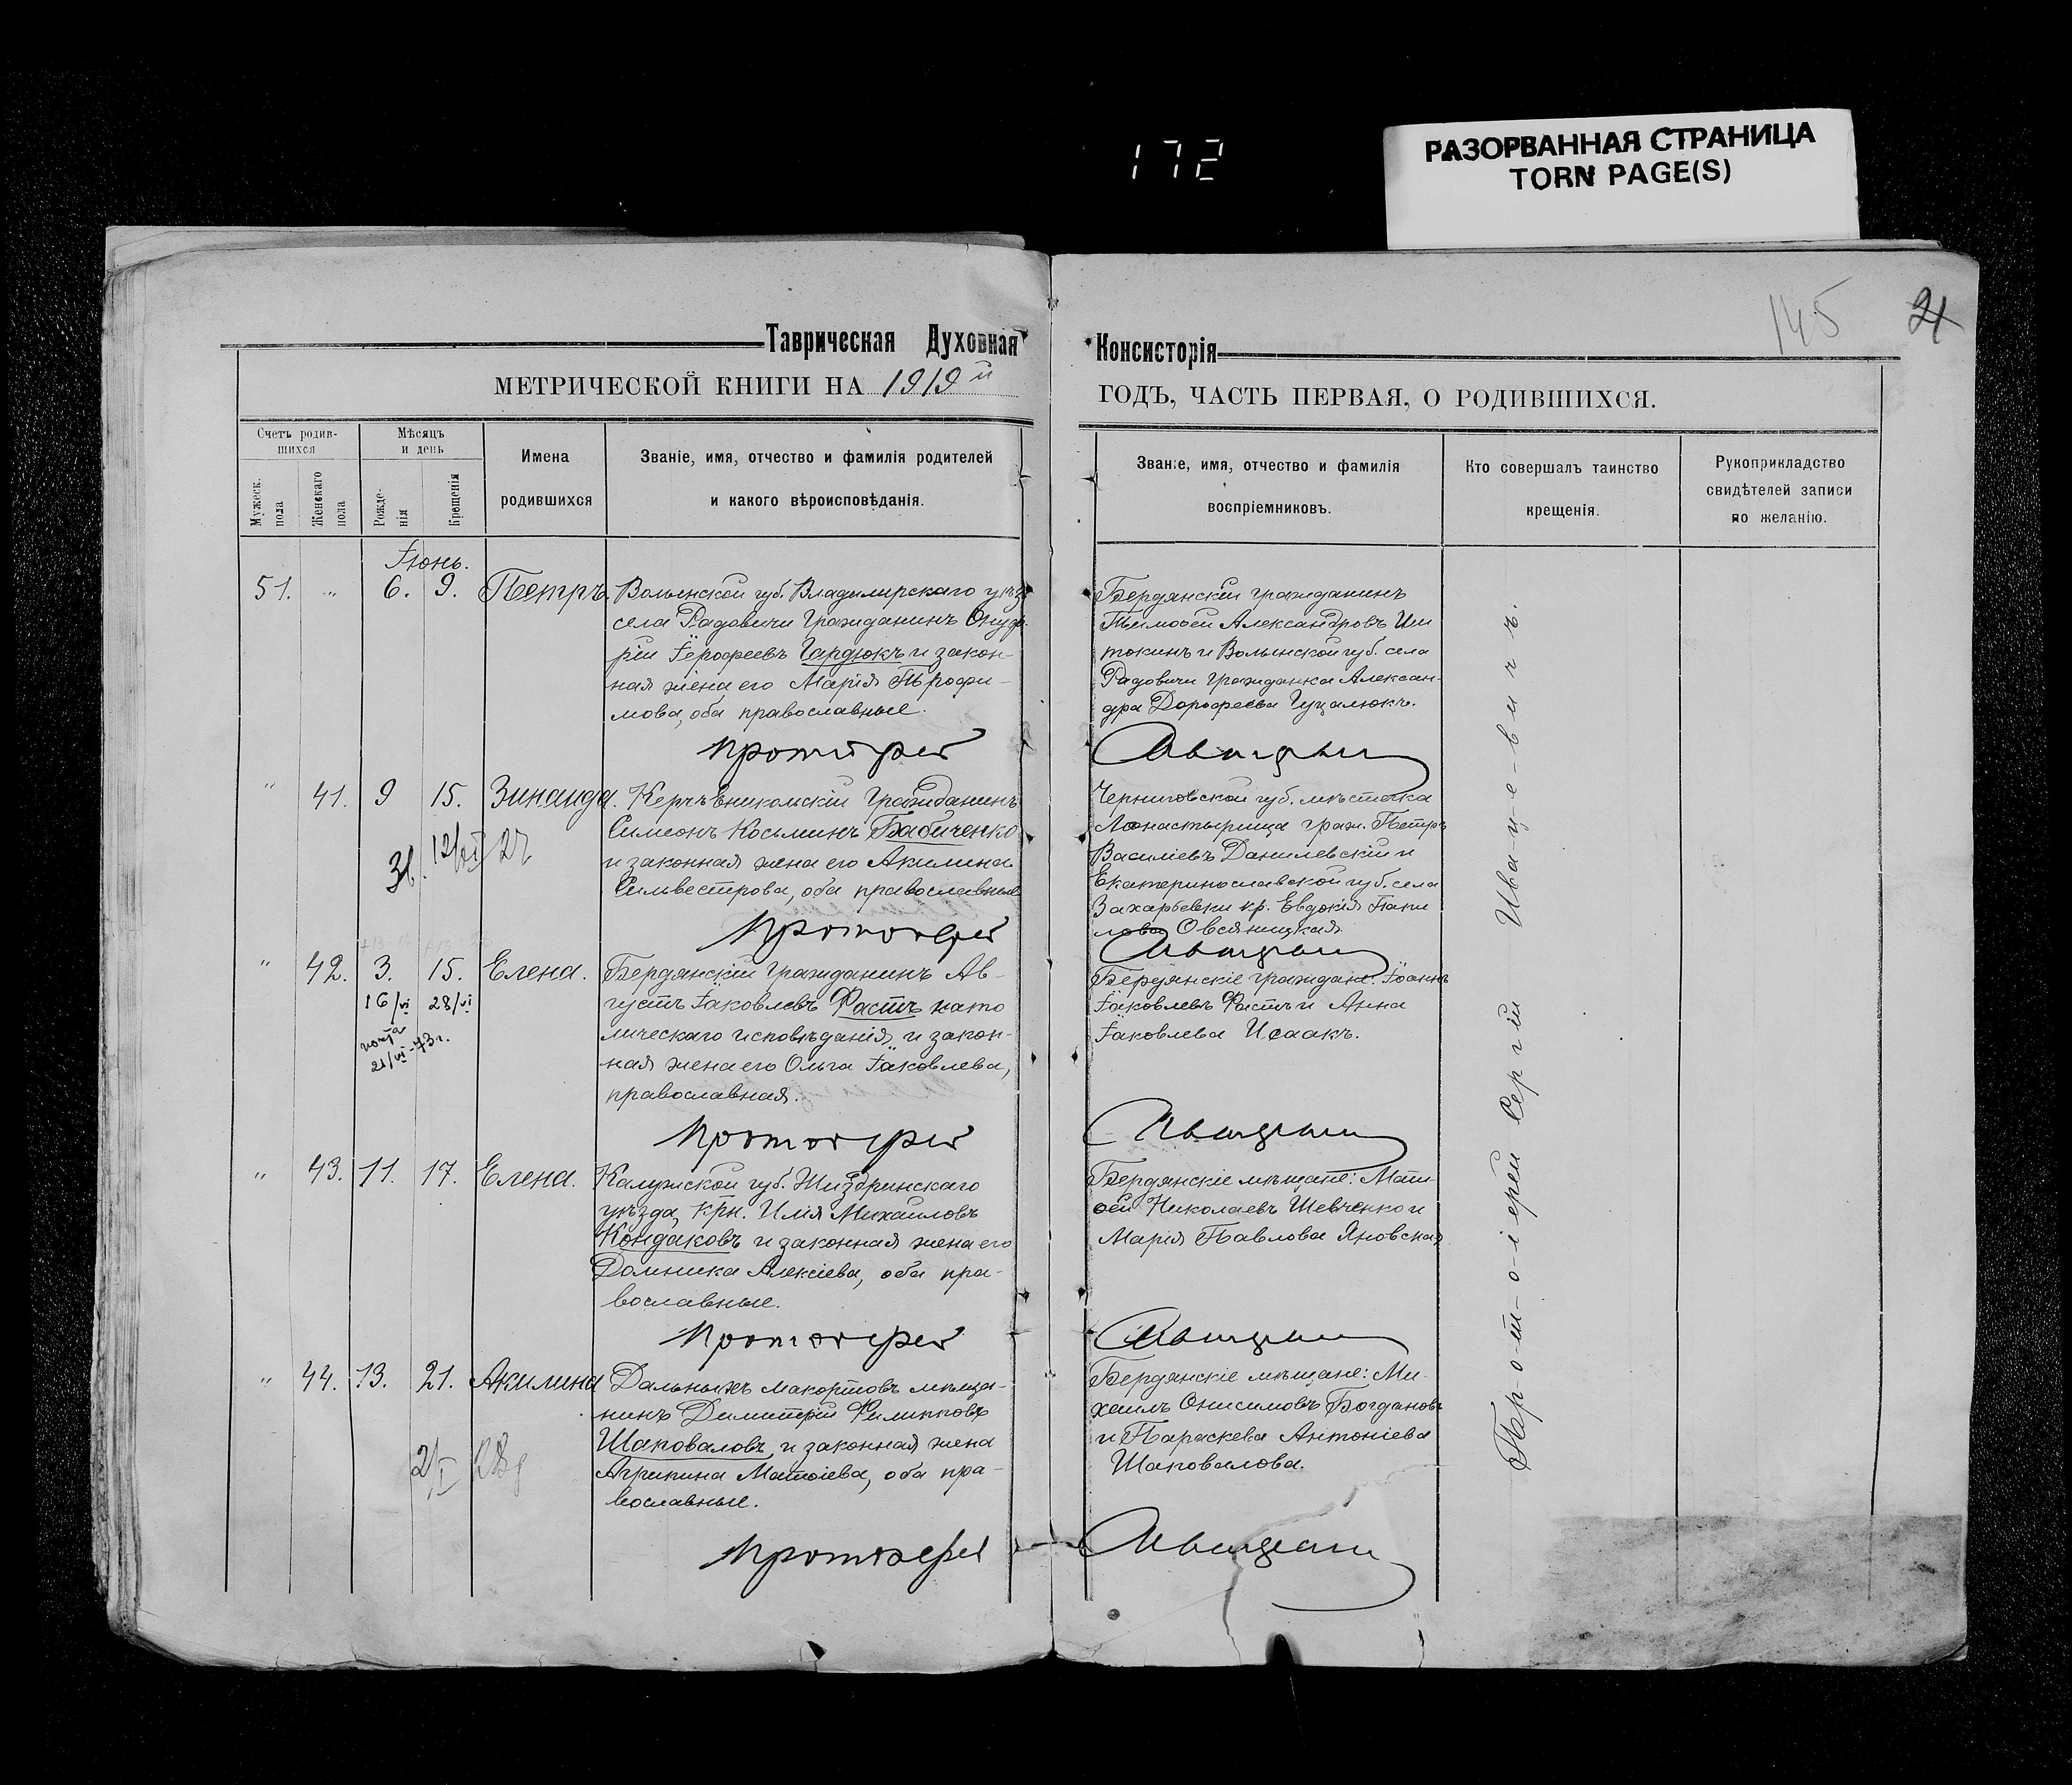 172
РАЗОРВАННАЯ СТРАНИЦА
TORN PAGE(S)
145
Таврическая Духовная
Консисторія
МЕТРИЧЕСКОЙ КНИГИ НА 1919 й
ГОДЪ, ЧАСТЬ ПЕРВАЯ, О РОДИВШИХСЯ.
Счетъ родив-
шихся
Мужеск. пола
Женскаго пола
Мѣсяцъ
и день
Рожде-
нія
Крещенія
Имена
родившихся
Званіе, имя, отчество и фамилія родителей
и какого вѣроисповѣданія.
Званіе, имя, отчество и фамилія
воспріемниковъ.
Кто совершалъ таинство
крещенія.
Рукоприкладство
свидѣтелей записи
по желанію.
Іюнь.
51. " 6. 9. Петръ.
Волынской губ. Владимірскаго уѣз.
села Радовичи гражданинъ
Іерофеевъ Гардюкъ и закон-
ная жена его Марія Трофи-
мова, оба православные.
Протоіерей
Бердянскій гражданинъ
Тимофей Александровъ
и Волынской губ. села
Радовичи гражданка Алексан-
дра Дорофеева Гуцалюкъ.
" 41. 9 15. Зинаида.
Керчь Еникольскій гражданинъ
Симеонъ Косьминъ Бабиченко
и законная жена его Акилина
Сильвестрова, оба православные
Протоіерей
Черниговской губ. мѣстечка
Монастырища граж. Петръ
Василіевъ Данилевскій и
Екатеринославской губ. села
Захарьевки кр. Евдокія
Овсяницкая
" 42. 3. 15. Елена.
16/VI 28/VI
21/VI-73г.
Бердянскій гражданинъ Ав-
густъ Іаковлевъ Фастъ като
лическаго исповѣданія, и закон-
ная жена его Ольга Іаковлева,
православная.
Протоіерей
Бердянскіе граждане: Іоаннъ
Іаковлевъ Фастъ и Анна
Іаковлева Исаакъ.
" 43. 11. 17. Елена.
Калужской губ. Жиздринскаго
уѣзда, крн. Илія Михаиловъ
Кондаковъ и законная жена его
Домника Алексіева, оба пра-
вославные.
Протоіерей
Бердянскіе мѣщане: Мат-
ѳей Николаевъ Шевченко и
Марія Павлова Яновская
" 44. 13. 21. Акилина
Дальныхъ Макортовъ мѣща-
нинъ Димитрій Филипповъ
Шаповаловъ, и законная жена
Агрипина Матѳіева, оба пра-
вославные.
Протоіерей
Бердянскіе мѣщане: Ми-
хаилъ Онисимовъ Богдановъ
и Параскева Антоніева
Шаповалова.
Пр-о-т-о-і ерей Сергій Ива-це-в и ч ъ.